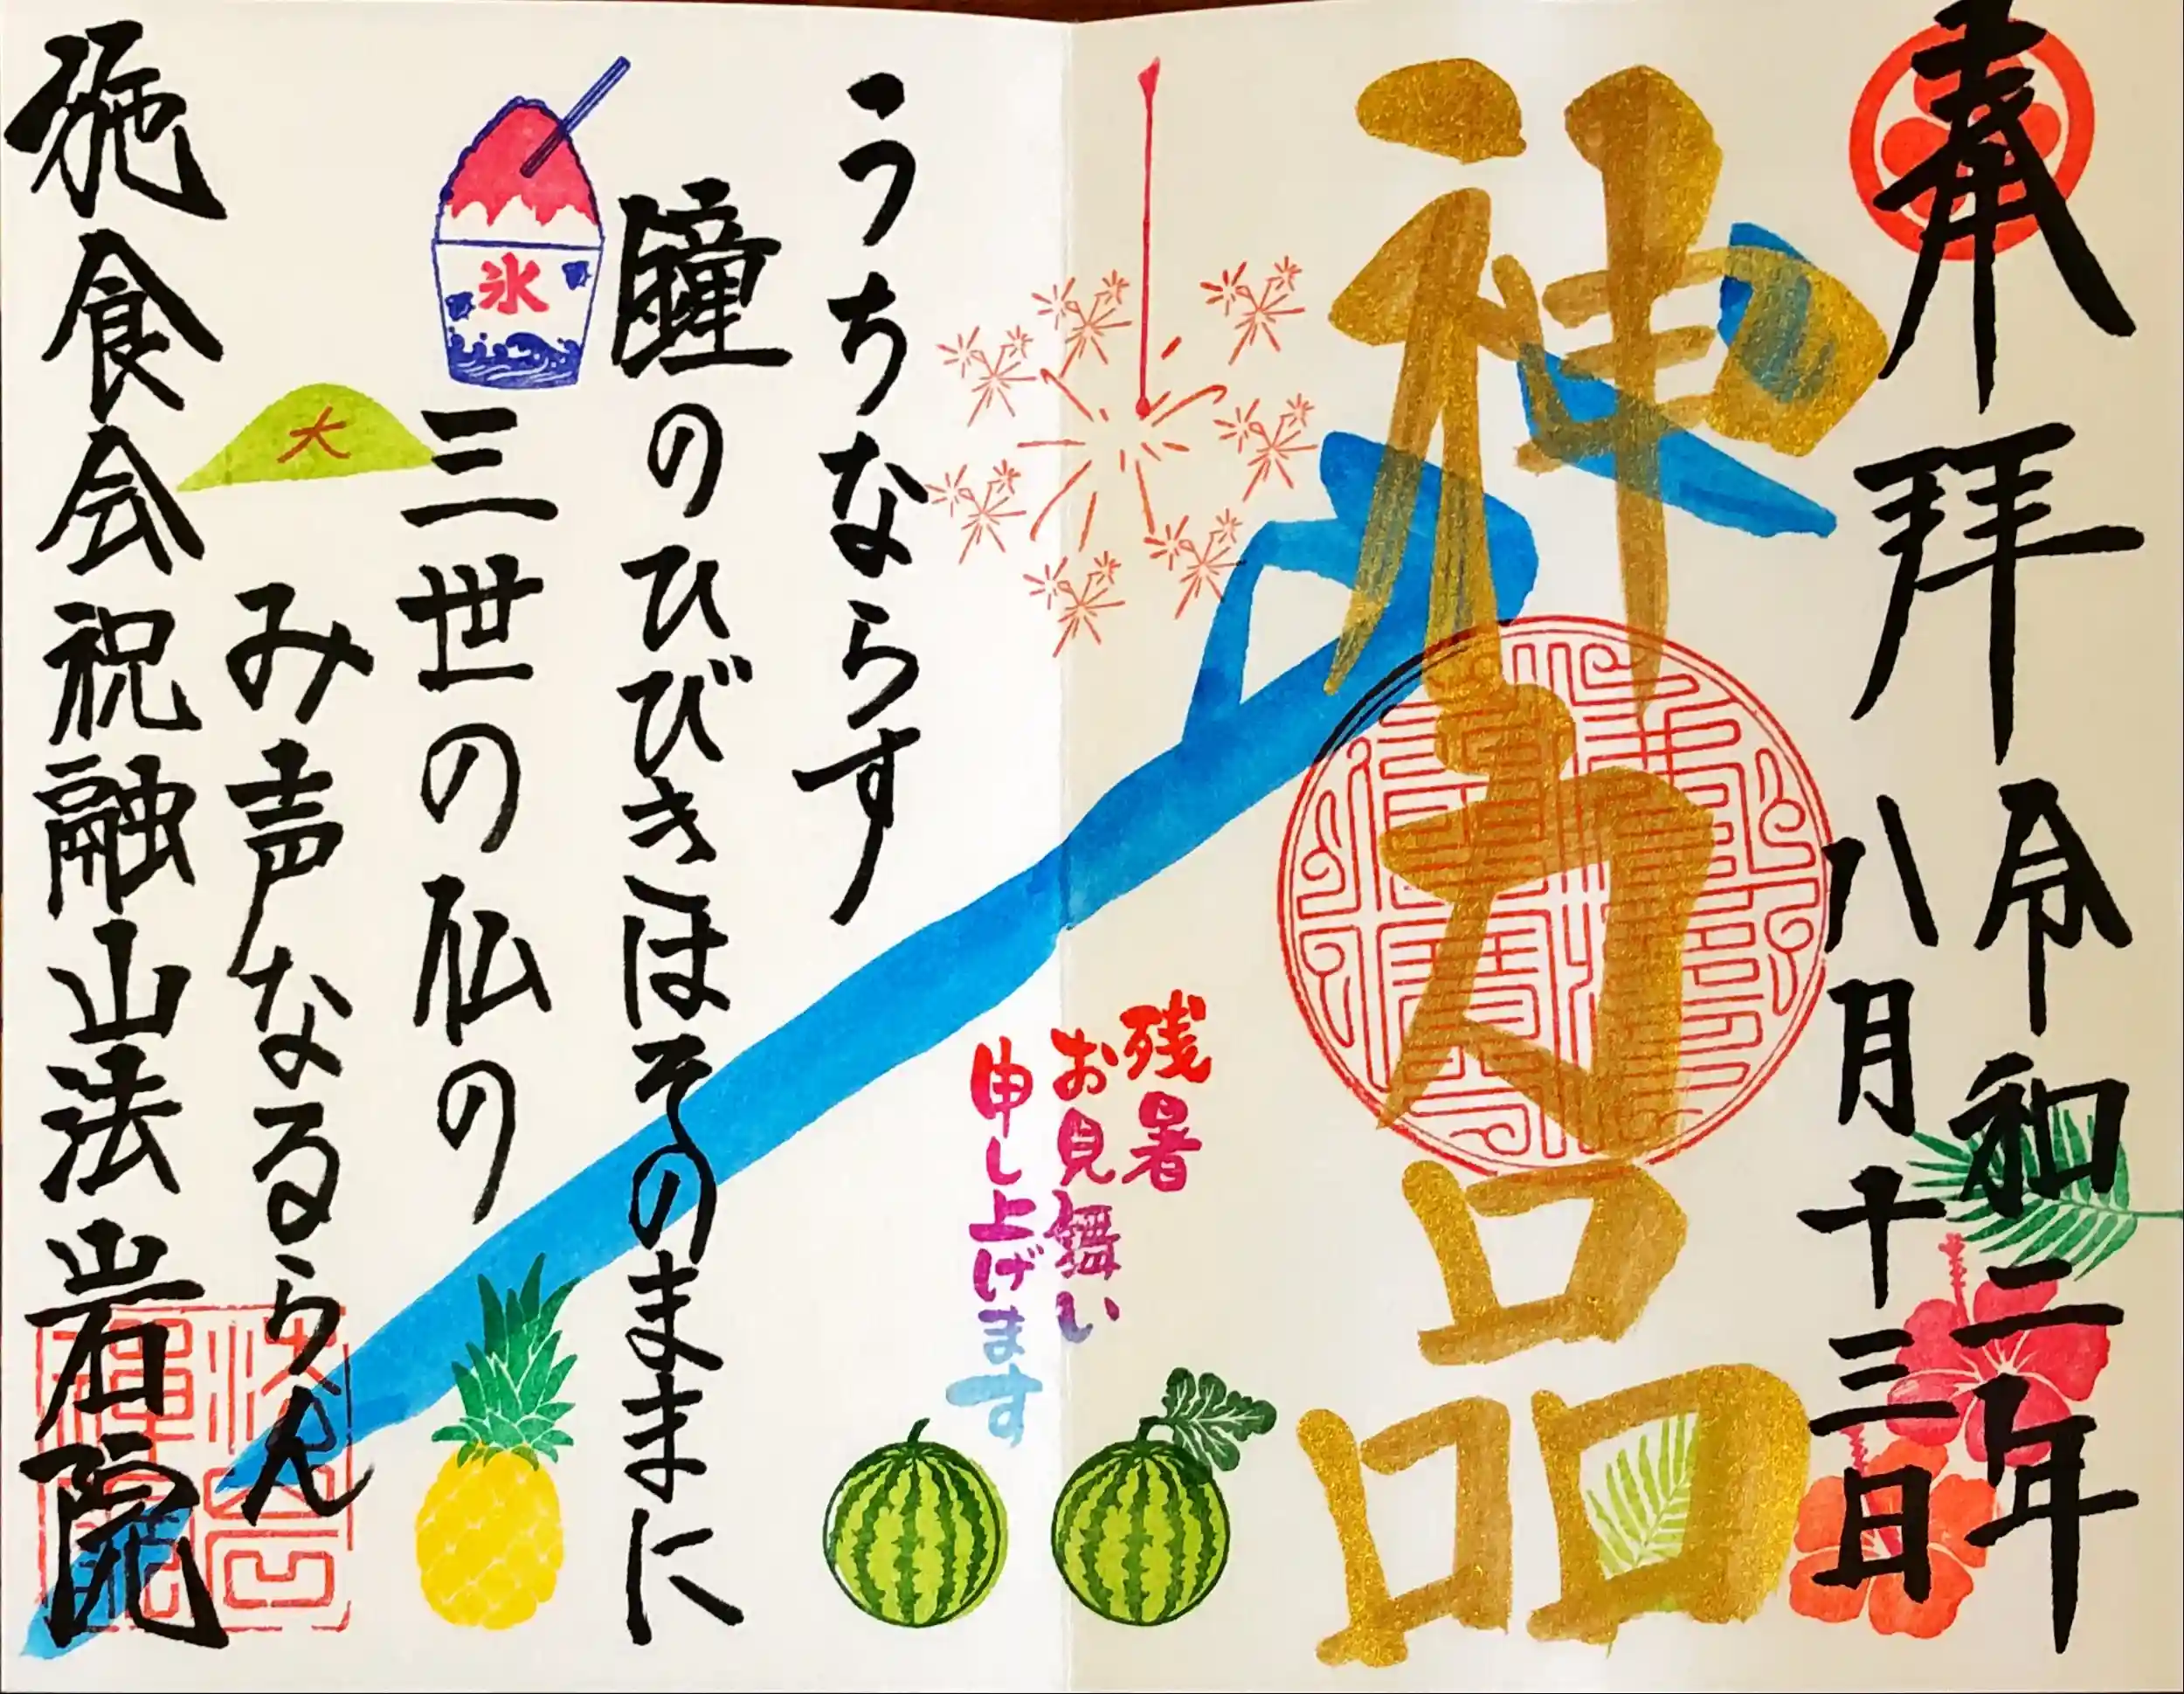 奉拝
令和二年
八月十三日
神力品
残暑
お見舞い
申し上げます
うちならす
鐘のひびきはそのままに
氷
三世の仏の
大
み声なるらん
施食会祝融山法岩院